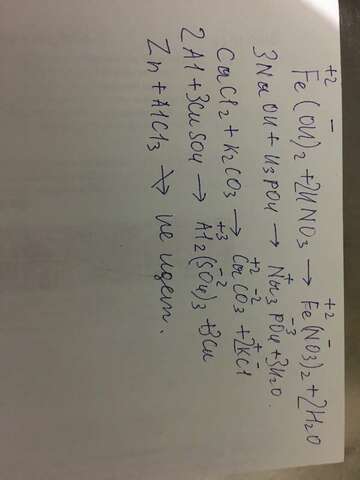 +2 - +2 -
Fe(OH)2 + 2HNO3 → Fe(NO3)2 + 2H2O
+ -3
3NaOH + H3PO4 → Na3PO4 + 3H2O.
+2 -2 + -
CaCl2 + K2CO3 → CaCO3 + 2KCl
+3 -2
2Al + 3CuSO4 → Al2(SO4)3 + 3Cu
Zn + AlCl3 ↛ не идет.